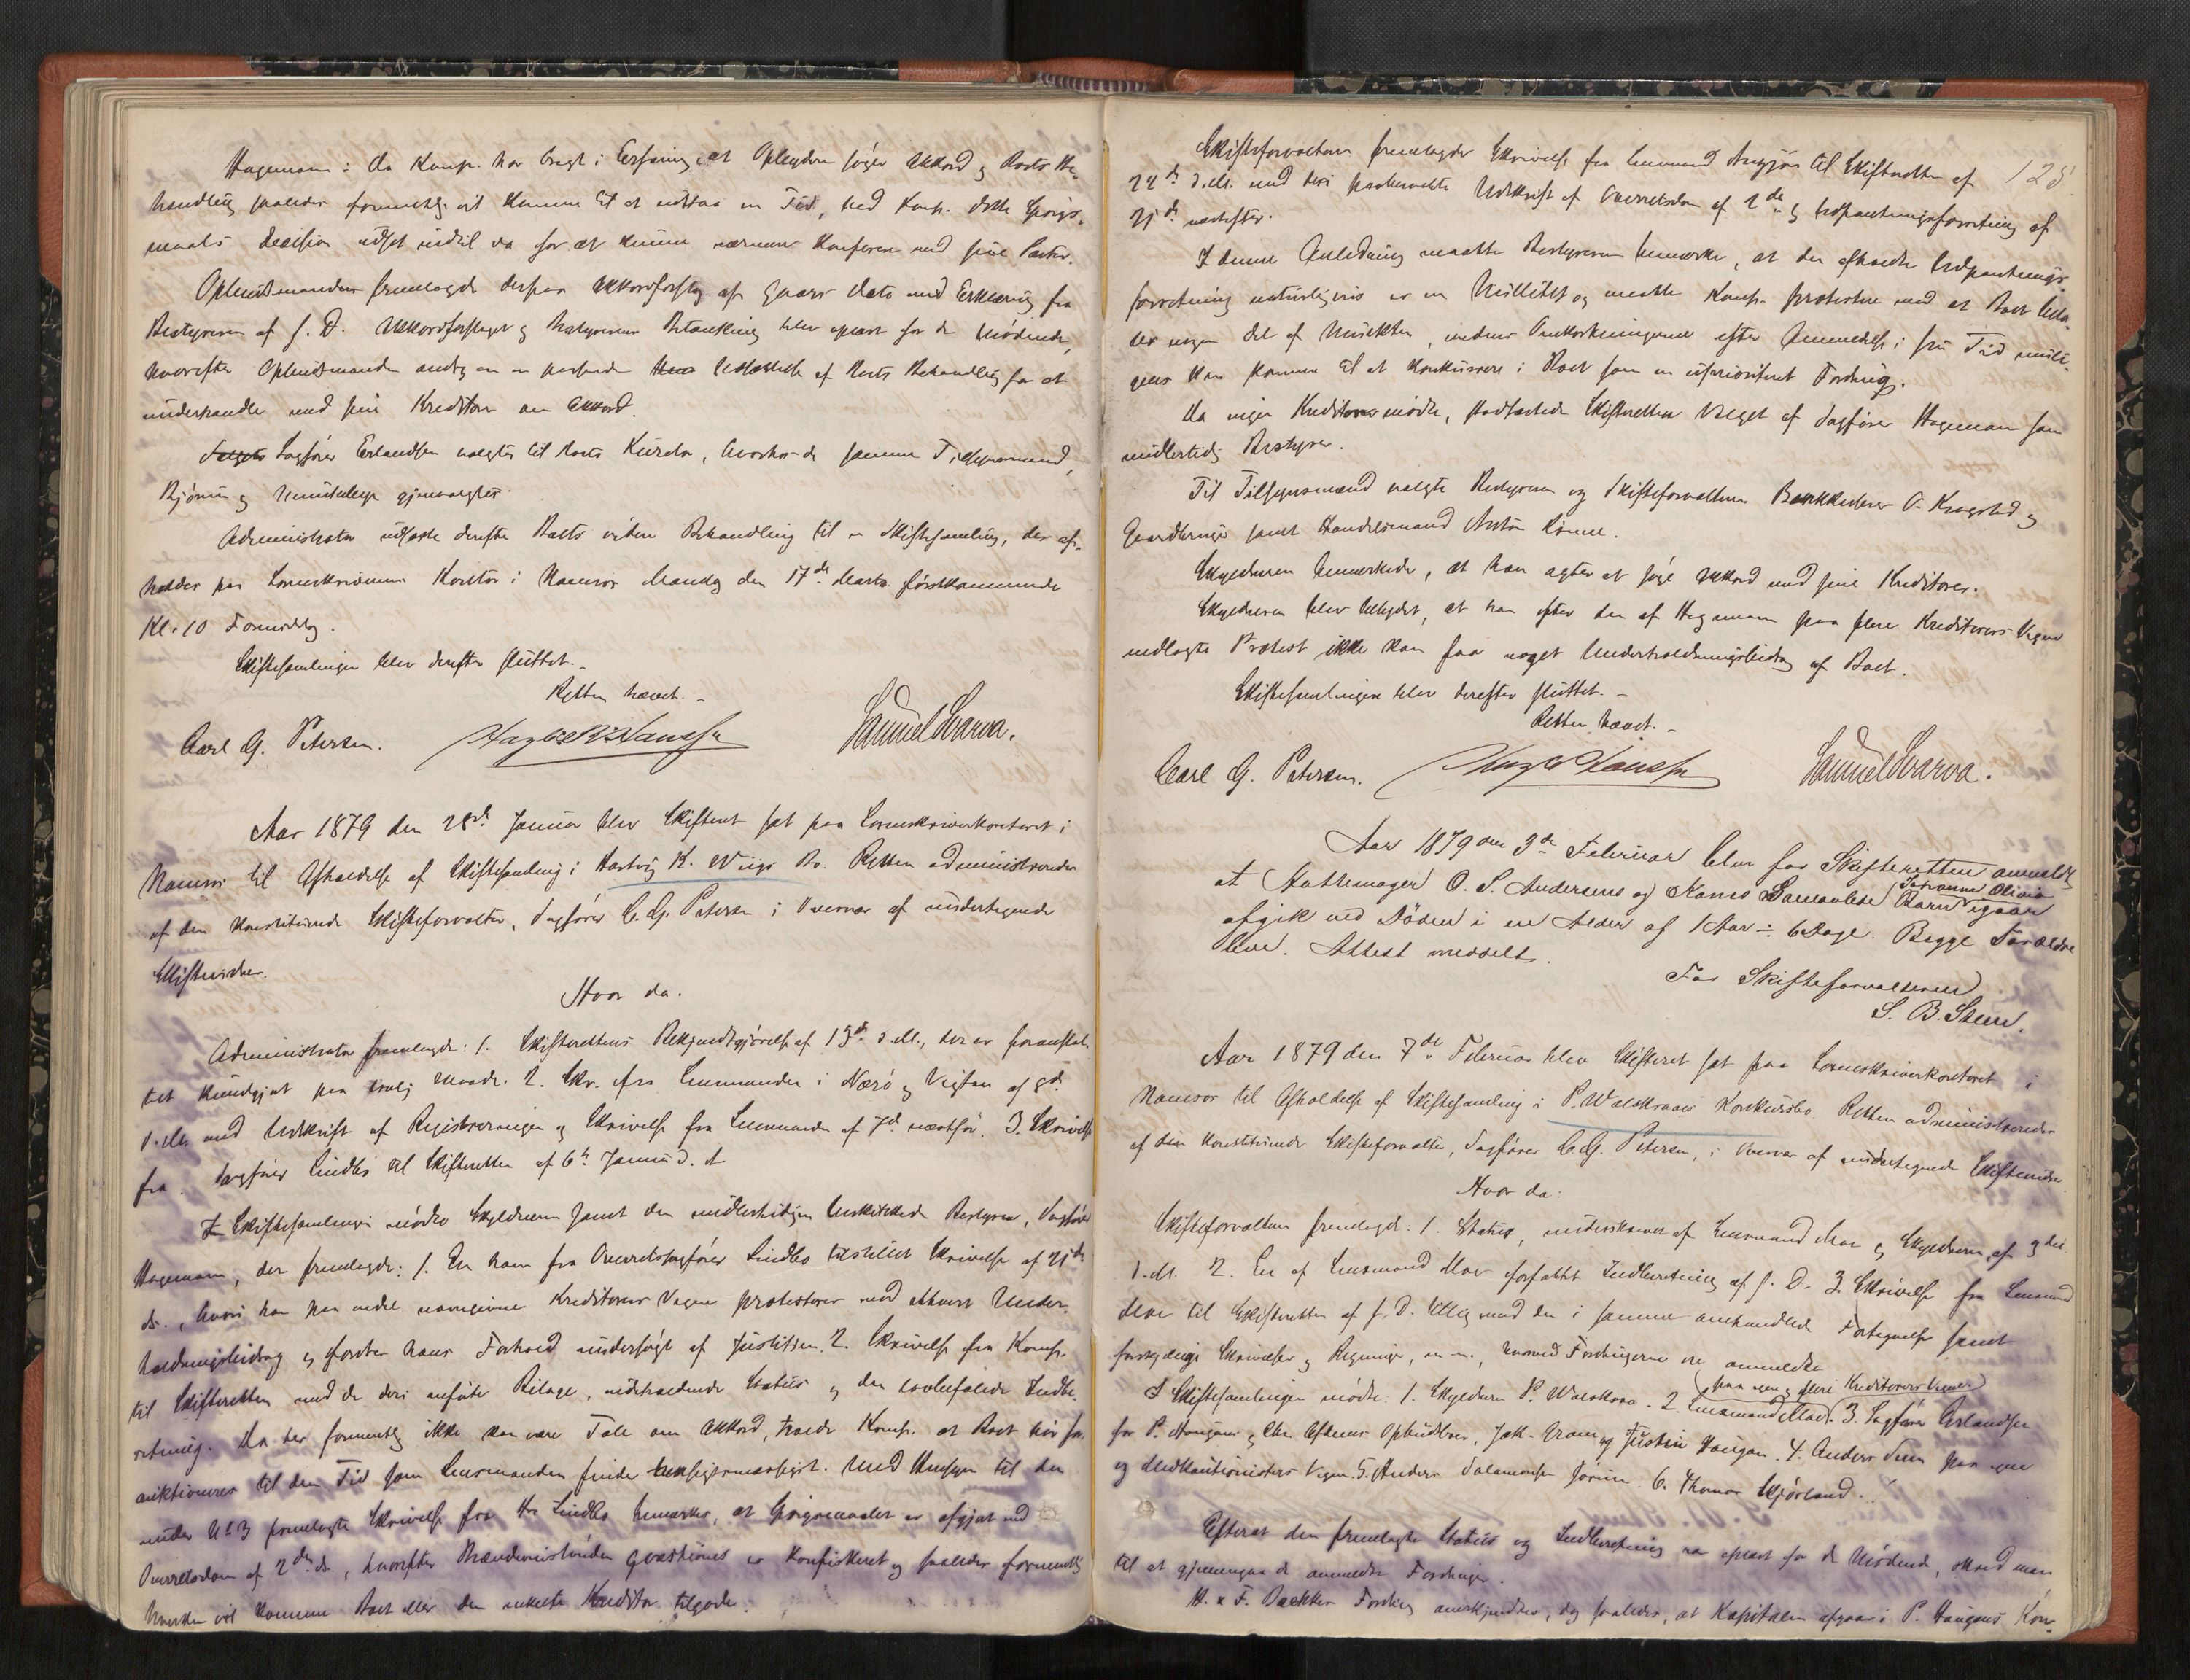 Hagemann: da Komp. har bragt i Erfaring at Opbyderen søger Akkord og Boets Be-
handling saaledes formentlig vil komme til at udstaa en Tid, bad Komp. dette Spørgs-
maals Decision udsat indtil da for at kunne nærmere konferere med sine Parter.
Opbudsmanden fremlagde derpaa Akkordforslag af Gaars Dato med Erklæring fra
Bestyreren af s. D. Akkordforslaget og Bestyrerens Betænkning blev oplæst for de Mødende,
hvorefter Opbudsmanden antog en passende Udsættelse af Boets Behandling for at
underhandle med sine Kreditorer om Akkord.
Sagfører Erlandsen valgtes til Boets Kurator, hvorhos de samme Tilsynsmænd,
Bjørum og gjenvalgtes.
Administrator udsatte derefter Boets videre Behandling til en Skiftesamling, der af-
holdes paa Sorenskriverens Kontor i Namsos Mandag den 17de Marts førstkommende
Kl. 10 Formiddag.
Skiftesamlingen blev derefter sluttet.-
Retten hævet.-
Carl G. Petersen. Hansen Samuel Svarva.
Aar 1879 den 28de Januar blev Skifteret sat paa Sorenskriverkontoret i
Namsos til Afholdelse af Skiftesamling i Hartvig K. Wiigs Bo. Retten administreredes
af den konstituerede Skifteforvalter, Sagfører C. G. Petersen i Overvær af undertegnede
Skiftevidner.
Hvor da:
Administrator fremlagde: 1. Skifterettens Bekjendtgjørelse af 13de d. M., der er foranstal-
tet kundgjort paa lovlig Maade. 2. Skr. fra Lensmanden i Nærø og Vigten af 9de
d. M. med Udskrift af Registreringen og Skrivelse fra Lensmanden af 7de næstfør. 3. Skrivelse
fra Sagfører Lindbo til Skifteretten af 6te Januar d. A.
I Skiftesamlingen mødte Skyldneren samt den midlertidigen beskikkede Bestyrer, Sagfører
Hagemann, der fremlagde: 1. En ham fra Overretssagfører Lindbo tilstillet Skrivelse af 21de
ds., hvori han paa endel navngivne Kreditorers Vegne protesterer mod ethvert Under-
holdningsbidrag og fordrer hans Forhold undersøgt af Justitsen. 2. Skrivelse fra Komp.
til Skifteretten med de deri anførte Bilage, indeholdende Status og den lovbefalede Indbe-
retning. Da der formentlig ikke kan være Tale om Akkord, troede Komp. at Boet bør for-
auktioneres til den Tid som Lensmanden finder hensigtsmæssigst. Med Hensyn til den
under No 3 fremlagte Skrivelse fra Hr. Lindbo bemærkes, at Spørgsmaalet er afgjort ved
Overretsdom af 2den ds., hvorefter Brændevinet qvæstionis er konfiskeret og saaledes formentlig
hverken vil komme Boet eller den enkelte Kreditor tilgode.
128
Skifteforvalteren fremlagde Skrivelse fra Lensmand til Skifteretten af
24de d. M. med deri paaberaabte Udskrift af Overretsdom af 2den og Udpantningsforretning af
21de næstefter.
I denne Anledning maatte Bestyreren bemærke, at den afholdte Udpantnings-
forretning naturligvis er en Nullitet og maatte Komp. protestere mod at Boet beta-
ler nogen Del af Mulkten, medens Omkostningerne efter Anmeldelse i sin Tid muli-
gens kan komme til at konkurrere i Boet som en uprioriteret Fordring.
Da ingen Kreditorer mødte, stadfæstede Skifteretten Valget af Sagfører Hagemann som
midlertidig Bestyrer.
Til Tilsynsmænd valgte Bestyreren og Skifteforvalteren Bankkasserer O. Krogstad og
samt Handelsmand Anton Rønne.
Skyldneren bemærkede, at han agter at søge Akkord med sine Kreditorer.
Skyldneren blev betydet, at han efter den af Hagemann paa flere Kreditorers Vegne
nedlagte Protest ikke kan faa noget Underholdningsbidrag af Boet.
Skiftesamlingen blev derefter sluttet.-
Retten hævet.-
Carl G. Petersen. Hansen Samuel Svarva.
Aar 1879 den 3de Februar blev for Skifteretten anmeldt,
at Skattemager O. S. Andersens og Kones Samavlede Barn Johanna Olivia igaar
afgik ved Døden i en Alder af 1 Aar ÷ 6 Dage. Begge Forældre
lever. Attest meddelt.
For Skifteforvalteren
S. B. Steen.
Aar 1879 den 7de Februar blev Skifteret sat paa Sorenskriverkontoret i
Namsos til Afholdelse af Skiftesamling i P. Walskraas Konkursbo. Retten administreredes
af den konstituerede Skifteforvalter, Sagfører C. G. Petersen, i Overvær af undertegnede Skiftevidner
Hvor da:
Skifteforvalteren fremlagde: 1. Status, underskrevet af Lensmand Moe og Skyldneren af 3die
d. M. 2. En af Lensmand Moe forfattet Indberetning af s. D. 3. Skrivelse fra Lensmand
Moe til Skifteretten af s. D. tillig med den i samme omhandlede Fortegnelse samt
forskjellige Skrivelser og Regninger, m. m., hvorved Fordringerne ere anmeldte
I Skiftesamlingen mødte: 1. Skyldneren P. Walskraa. 2. Lensmand Moe paa egne og flere Kreditorers Vegne. 3. Sagfører Erlandsen
for P. Haugans og Chr. Opbudsboer, Jak. Gram og Justin Haugan. 4. Anders paa egne
og Medkautionisters Vegne. 5. Anders Salamonsen 6. Thomas Skjørland.
Efterat den fremlagte Status og Indberetning var oplæst for de Mødende, skred man
til at gjennemgaa de anmeldte Fordringer.
H. & F. Bachkes Fordring anerkjendtes, dog saaledes, at Kapitalen afgaar i P. Haugans Kon-